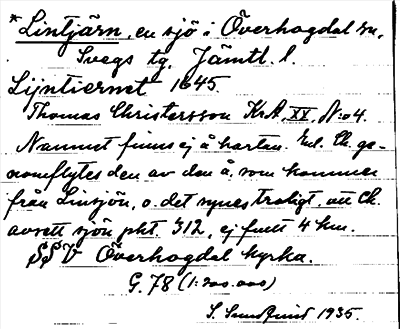 *Lintjärn, en sjö i Överhogdal sn,
Svegs tg, Jämtl. l.
Lijntiernet 1645
Thomas Christersson KrA, XX, N:o 4.
Namnet finns ej å kartan. Enl. Ch. ge-
nomflytes den av den å, som kommer
från Linsjön, o. det synes troligt, att Ch.
avsett sjön pkt. 312, ej fullt 4 km.
SSV Överhogdal kyrka.
G. 78 (1:200.000)
S. Sundfeind 1935.